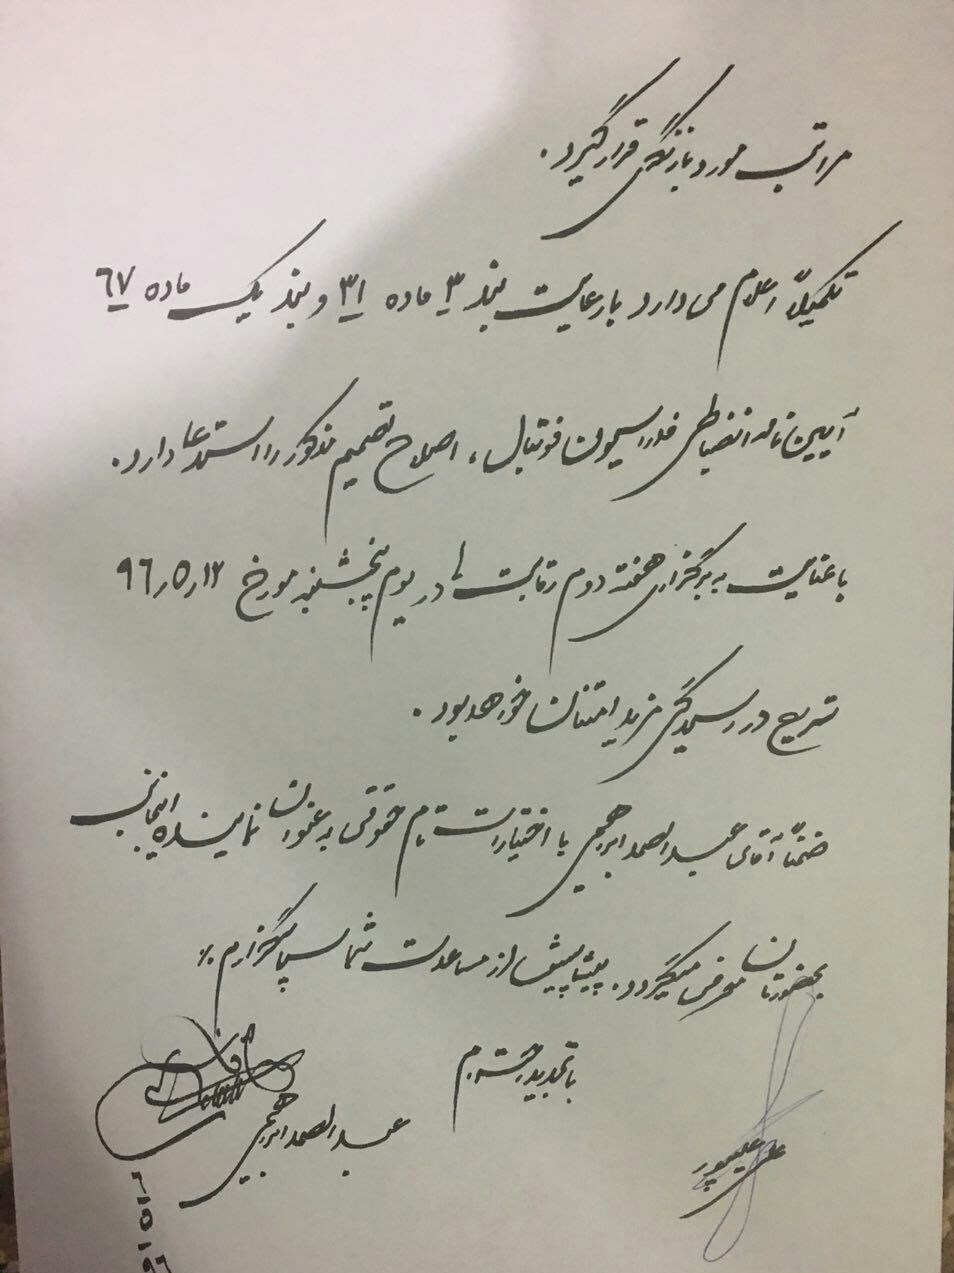 مراتب مورد بازنگری قرار گیرد.
تکمیلاً اعلام می دارد با رعایت بند ۳ ماده ۳۱ و بند یک ماده ۶۷
آیین نامه انضباطی فدراسیون فوتبال، اصلاح تصمیم مذکور را استدعا دارد.
با عنایت به برگزاری هفته دوم رقابت ها در یوم پنجشنبه مورخ ۹۶٫۵٫۱۲
تسریع در رسیدگی مزید امتنان خواهد بود.
ضمناً آقای عبدالصمد ابراهیمی با اختیارات تام حقوقی به عنوان نماینده اینجانب
بحضورتان معرفی میگردد. پیشاپیش از مساعدت شما سپاسگزارم٪
با تجدید احترام
علی علیپور
عبدالصمد ابراهیمی